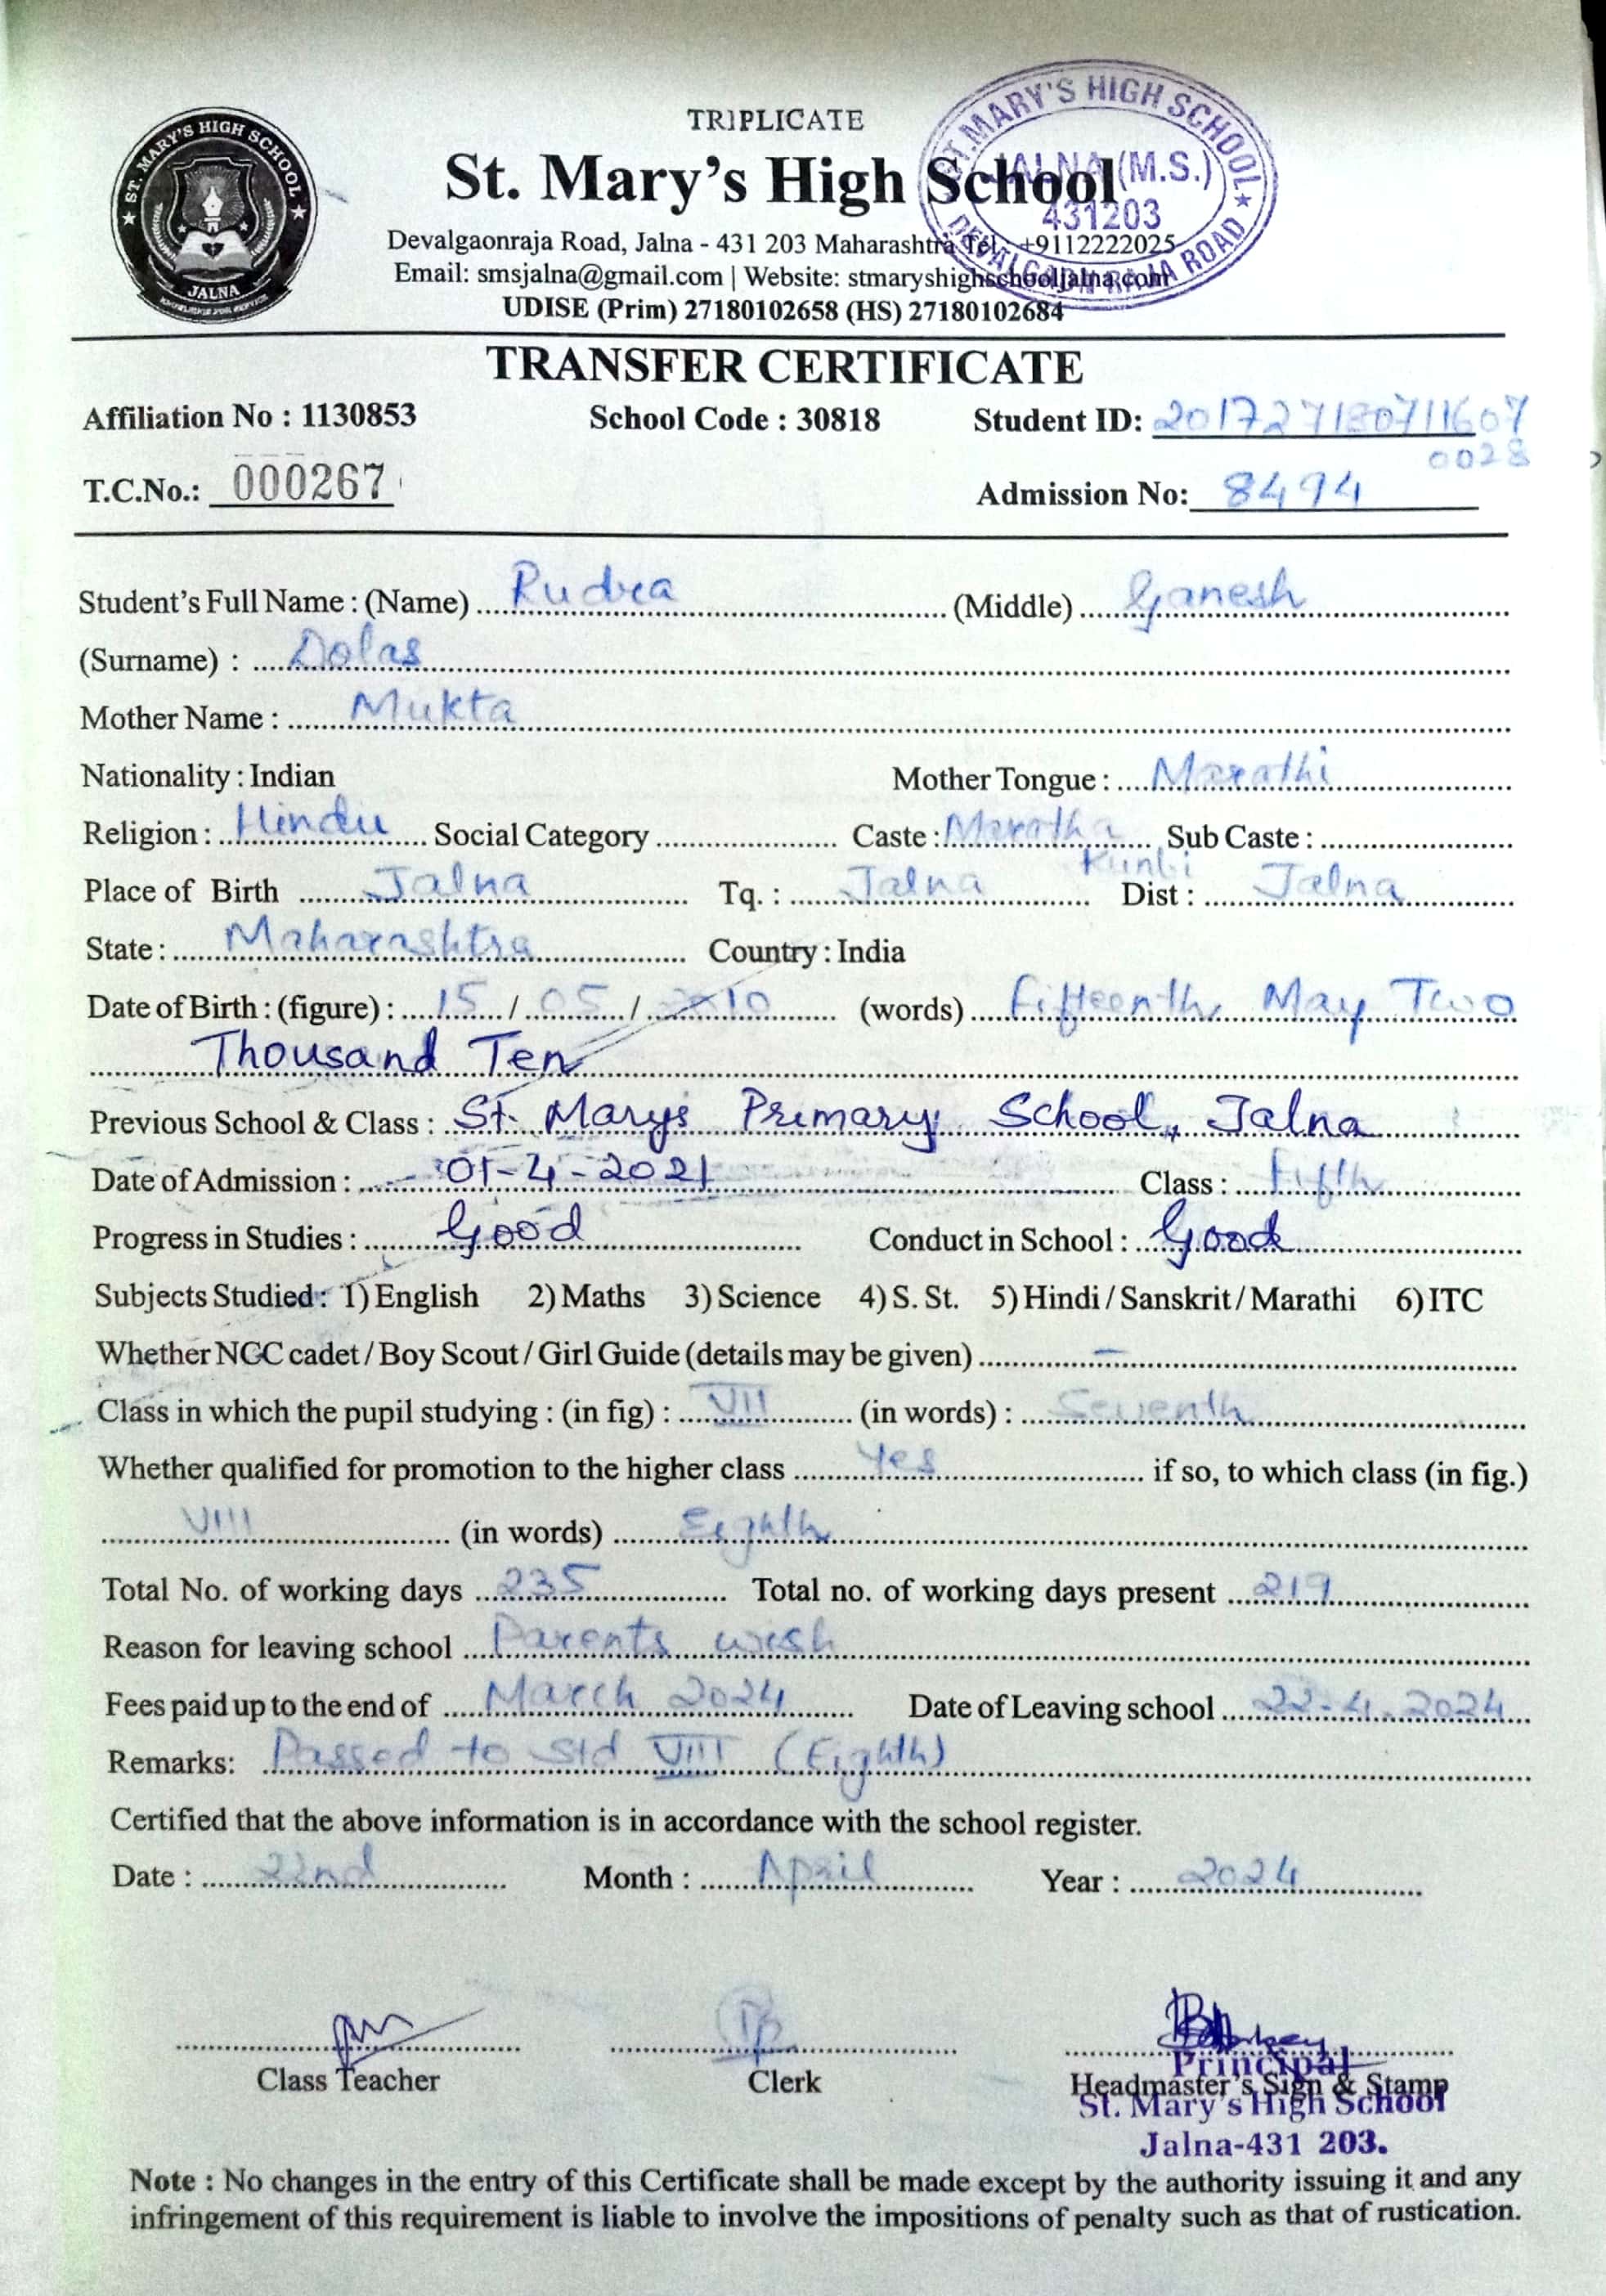 TRIPLICATE
St. Mary's High School
Devalgaonraja Road, Jalna - 431 203 Maharashtra Tel.: +9112222025
Email: smsjalna@gmail.com | Website: stmaryshighschooljalna.com
UDISE (Prim) 27180102658 (HS) 27180102684
ST. MARY'S HIGH SCHOOL
JALNA
ST. MARY'S HIGH SCHOOL
JALNA (M.S.)
431203
DEVALGAON RAJA ROAD
TRANSFER CERTIFICATE
Affiliation No : 1130853 School Code : 30818 Student ID: 201727180711607
0028
T.C.No.: 000267 Admission No: 8494
Student's Full Name : (Name) Rudra (Middle) Ganesh
(Surname) : Dolas
Mother Name : Mukta
Nationality : Indian Mother Tongue : Marathi
Religion : Hindu Social Category Caste : Maratha Sub Caste :
Kunbi
Place of Birth Jalna Tq. : Jalna Dist : Jalna
State : Maharashtra Country : India
Date of Birth : (figure) : 15 / 05 / 2010 (words) Fifteenth May Two
Thousand Ten
Previous School & Class : St. Marys Primary School, Jalna
Date of Admission : 01-4-2021 Class : Fifth
Progress in Studies : Good Conduct in School : Good
Subjects Studied : 1) English 2) Maths 3) Science 4) S. St. 5) Hindi / Sanskrit / Marathi 6) ITC
Whether NCC cadet / Boy Scout / Girl Guide (details may be given) —
Class in which the pupil studying : (in fig) : VII (in words) : Seventh
Whether qualified for promotion to the higher class Yes if so, to which class (in fig.)
VIII (in words) Eighth
Total No. of working days 235 Total no. of working days present 219
Reason for leaving school Parents wish
Fees paid up to the end of March 2024 Date of Leaving school 22-4-2024
Remarks: Passed to Std VIII (Eighth)
Certified that the above information is in accordance with the school register.
Date : 22nd Month : April Year : 2024
Class Teacher Clerk Headmaster's Sign & Stamp
Principal
St. Mary's High School
Jalna-431 203.
Note : No changes in the entry of this Certificate shall be made except by the authority issuing it and any
infringement of this requirement is liable to involve the impositions of penalty such as that of rustication.